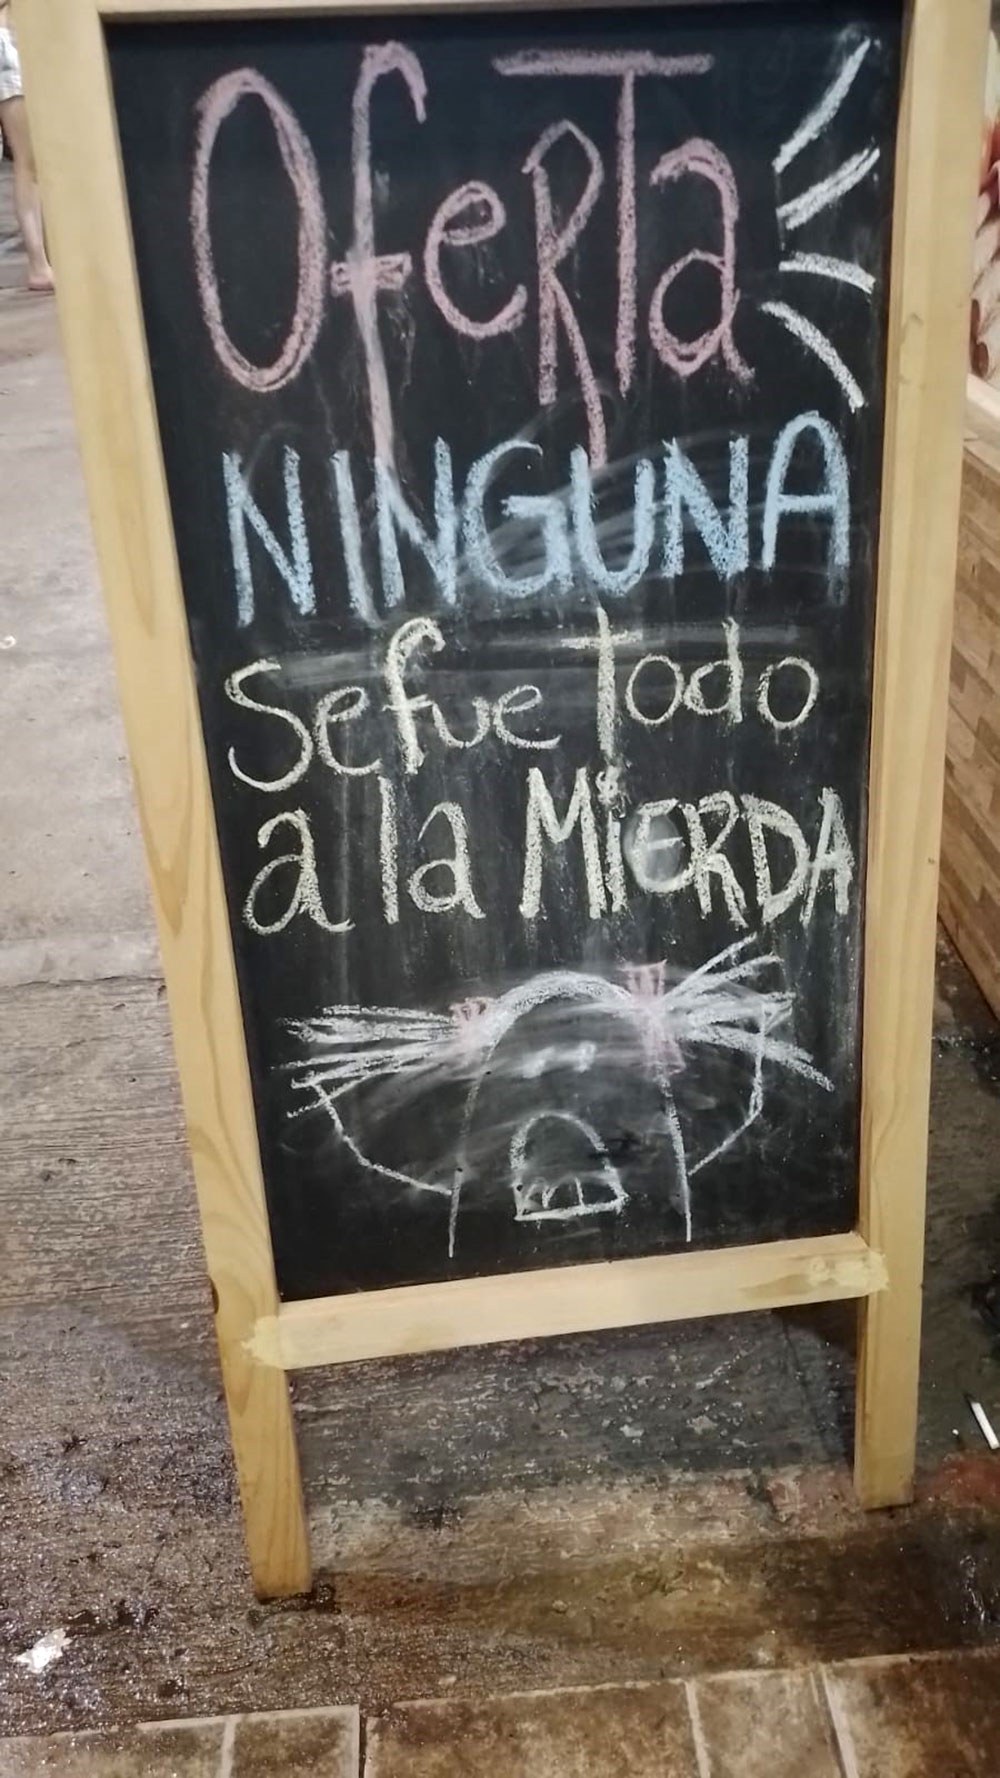 Oferta
NINGUNA
Se fue Todo
a la MiERDA